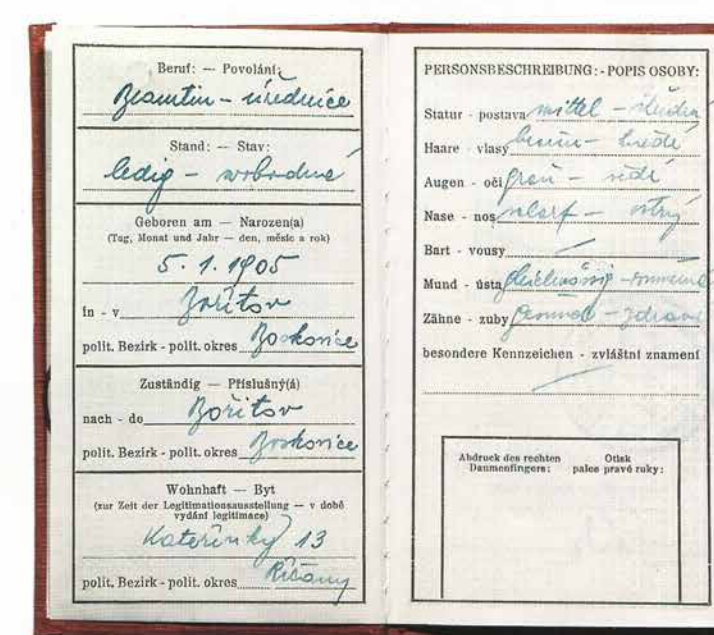 Beruf: — Povolání:
Beamtin – úřednice
Stand: — Stav:
ledig – svobodná
Geboren am — Narozen(a)
(Tag, Monat und Jahr — den, měsíc a rok)
5. 1. 1905
in - v Bořitov
polit. Bezirk - polit. okres Boskovice
Zuständig — Příslušný(á)
nach - do Bořitov
polit. Bezirk - polit. okres Boskovice
Wohnhaft — Byt
(zur Zeit der Legitimationsausstellung — v době
vydání legitimace)
Kateřinky 13
polit. Bezirk - polit. okres Říčany
PERSONSBESCHREIBUNG: - POPIS OSOBY:
Statur - postava mittel –
Haare - vlasy braun – hnědé
Augen - oči grau – šedé
Nase - nos scharf – ostrý
Bart - vousy —
Mund - ústa gleichmässig – souměrná
Zähne - zuby gesund – zdravé
besondere Kennzeichen - zvláštní znamení
—
Abdruck des rechten Otisk
Daumenfingers: palce pravé ruky: